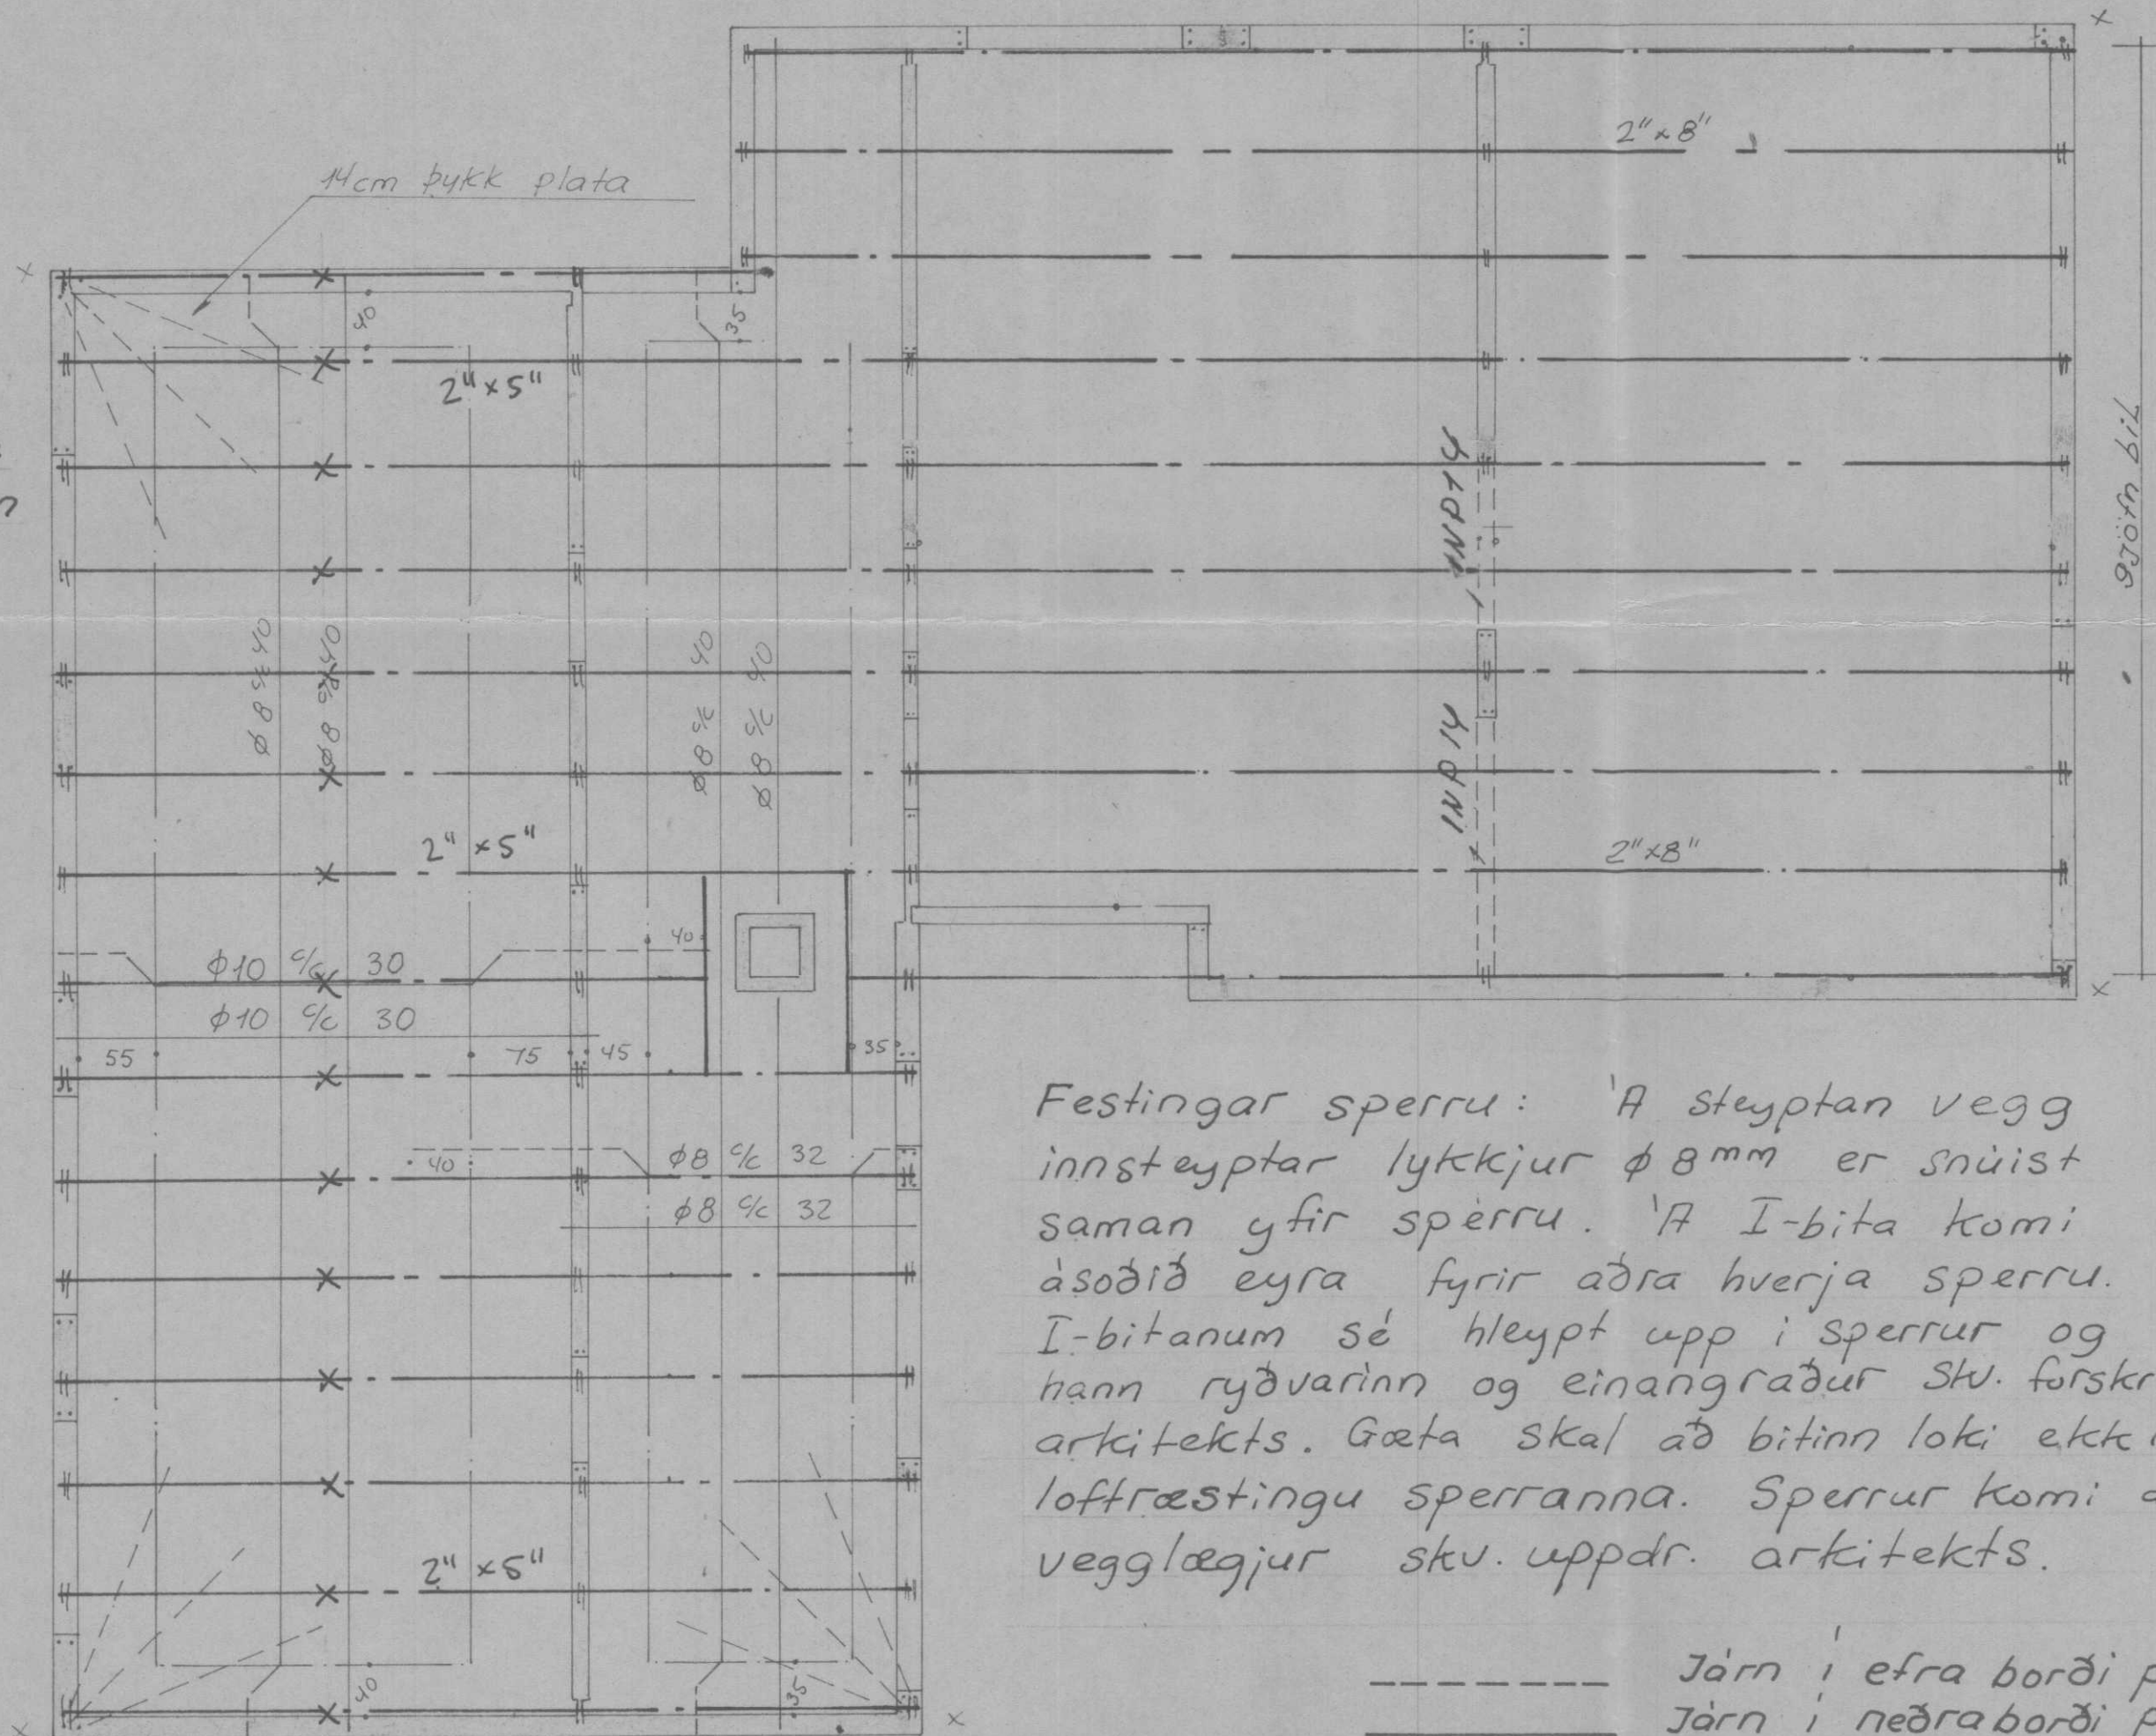 2"x8"
14cm þykk plata
40
35
2"x5"
INP14
gjöfn bil
ϕ8 c/c 40
ϕ8 c/c 40
ϕ8 c/c 40
ϕ8 c/c 40
INP14
2"x5"
2"x8"
40
ϕ10 c/c 30
ϕ10 c/c 30
55
75
45
35
40
ϕ8 c/c 32
ϕ8 c/c 32
Festingar sperru: Á steyptan vegg
innsteyptar lykkjur ϕ 8mm er snúist
saman yfir sperru. Á I-bita komi
ásoðið eyra fyrir aðra hverja sperru.
I-bitanum sé hleypt upp í sperrur og
hann ryðvarinn og einangraður skv. forskr
arkitekts. Gæta skal að bitinn loki ekki
loftræstingu sperranna. Sperrur komi á
vegglægjur skv. uppdr. arkitekts.
2"x5"
40
35
Járn í efra borði p
Járn í neðra borði p